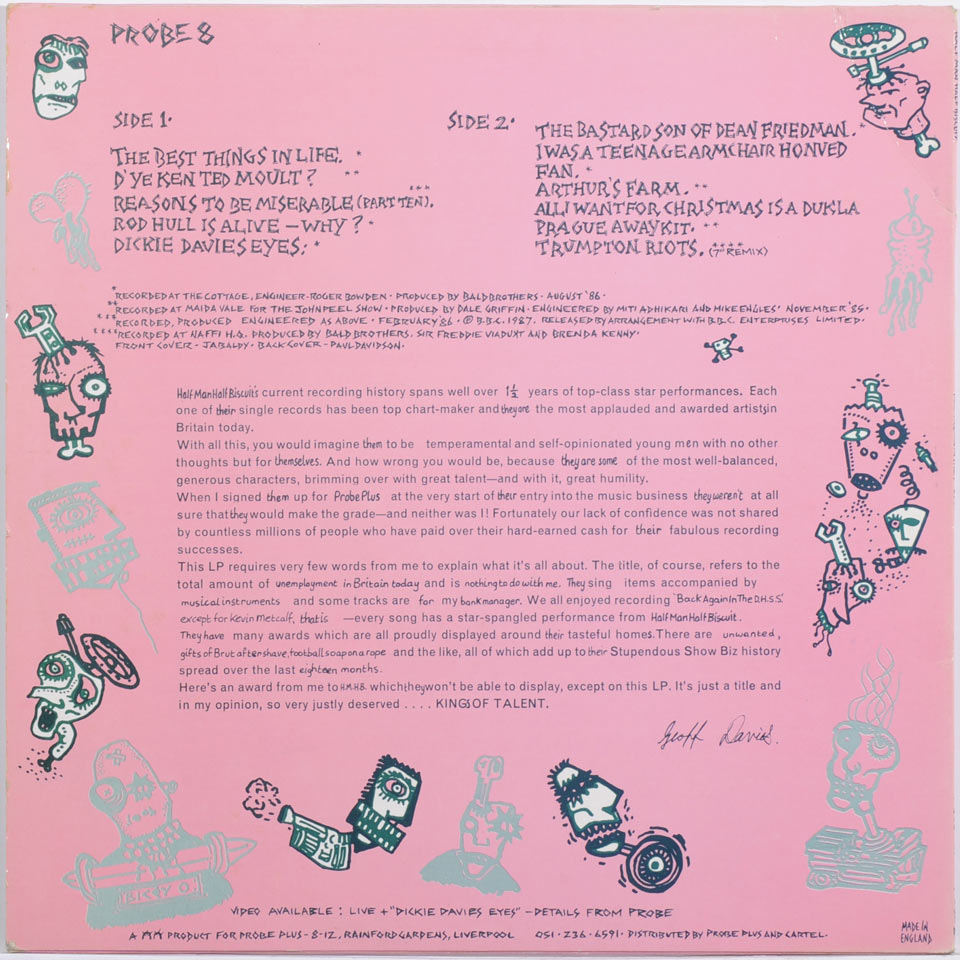 PROBE 8
SIDE 1.
THE BEST THINGS IN LIFE. *
D'YE KEN TED MOULT? **
REASONS TO BE MISERABLE (PART TEN). ***
ROD HULL IS ALIVE – WHY? *
DICKIE DAVIES EYES. *
SIDE 2.
THE BASTARD SON OF DEAN FRIEDMAN. *
I WAS A TEENAGE ARMCHAIR HONVED
FAN. *
ARTHUR'S FARM. **
ALL I WANT FOR CHRISTMAS IS A DUKLA
PRAGUE AWAY KIT. **
TRUMPTON RIOTS. (7" REMIX) ****
* RECORDED AT THE COTTAGE, ENGINEER - ROGER BOWDEN • PRODUCED BY BALD BROTHERS - AUGUST '86.
** RECORDED AT MAIDA VALE FOR THE JOHN PEEL SHOW • PRODUCED BY DALE GRIFFIN • ENGINEERED BY MITI ADHIKARI AND MIKE ENGLES' NOVEMBER '85.
*** RECORDED, PRODUCED ENGINEERED AS ABOVE • FEBRUARY '86 • Ⓟ B.B.C. 1987. RELEASED BY ARRANGEMENT WITH B.B.C. ENTERPRISES LIMITED.
**** RECORDED AT NAFFI H.Q. PRODUCED BY BALD BROTHERS. SIR FREDDIE VIADUKT AND BRENDA KENNY.
FRONT COVER - JABALDY • BACK COVER - PAUL DAVIDSON.
Half Man Half Biscuit's current recording history spans well over 1½ years of top-class star performances. Each
one of their single records has been top chart-maker and they are the most applauded and awarded artists in
Britain today.
With all this, you would imagine them to be temperamental and self-opinionated young men with no other
thoughts but for themselves. And how wrong you would be, because they are some of the most well-balanced,
generous characters, brimming over with great talent—and with it, great humility.
When I signed them up for Probe Plus at the very start of their entry into the music business they weren't at all
sure that they would make the grade—and neither was I! Fortunately our lack of confidence was not shared
by countless millions of people who have paid over their hard-earned cash for their fabulous recording
successes.
This LP requires very few words from me to explain what it's all about. The title, of course, refers to the
total amount of unemployment in Britain today and is nothing to do with me. They sing items accompanied by
musical instruments and some tracks are for my bank manager. We all enjoyed recording 'Back Again In The D.H.S.S.'
except for Kevin Metcalf, that is —every song has a star-spangled performance from Half Man Half Biscuit.
They have many awards which are all proudly displayed around their tasteful homes. There are unwanted,
gifts of Brut aftershave, football soap on a rope and the like, all of which add up to their Stupendous Show Biz history
spread over the last eighteen months.
Here's an award from me to H.M.H.B. which they won't be able to display, except on this LP. It's just a title and
in my opinion, so very justly deserved .... KINGS OF TALENT.
Geoff Davies.
VIDEO AVAILABLE : LIVE + "DICKIE DAVIES EYES" – DETAILS FROM PROBE
PRODUCT FOR PROBE PLUS - 8-12, RAINFORD GARDENS, LIVERPOOL 051 • 236 • 6591 • DISTRIBUTED BY PROBE PLUS AND CARTEL.
MADE IN
ENGLAND